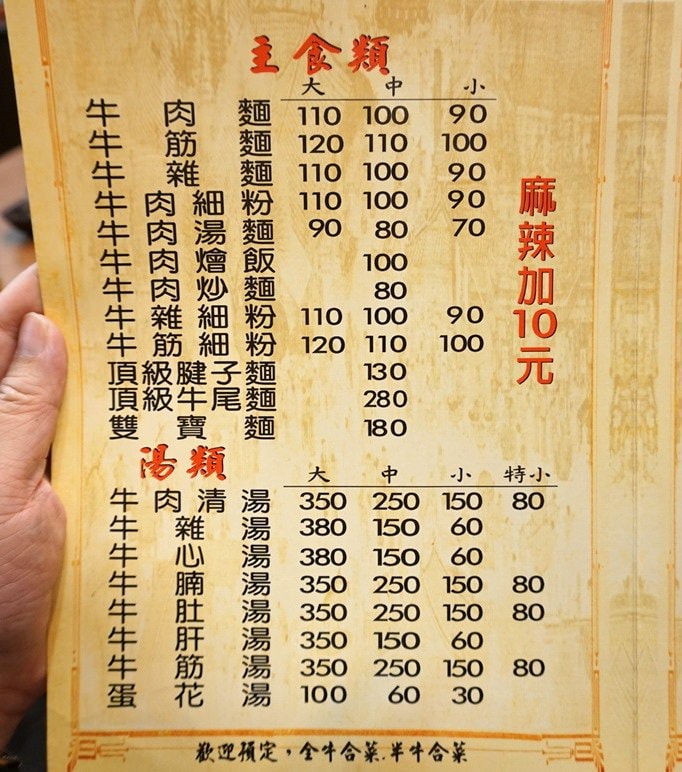 主食類
大 中 小
牛肉麵 110 100 90
牛筋麵 120 110 100
牛雜麵 110 100 90
牛肉細粉 110 100 90
牛肉湯麵 90 80 70
牛肉燴飯 100
牛肉炒麵 80
牛雜細粉 110 100 90
牛筋細粉 120 110 100
頂級腱子麵 130
頂級牛尾麵 280
雙寶麵 180
麻辣加10元
湯類
大 中 小 特小
牛肉清湯 350 250 150 80
牛雜湯 380 150 60
牛心湯 380 150 60
牛腩湯 350 250 150 80
牛肚湯 350 250 150 80
牛肝湯 350 150 60
牛筋湯 350 250 150 80
蛋花湯 100 60 30
歡迎預定，全牛合菜.半牛合菜